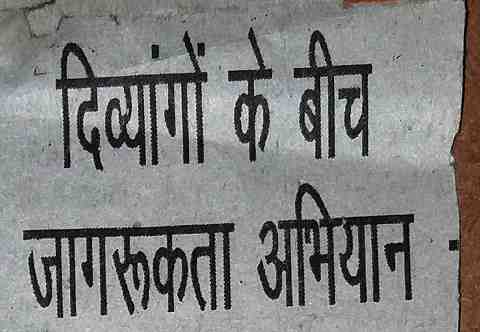 दिव्यांगों के बीच
जागरूकता अभियान